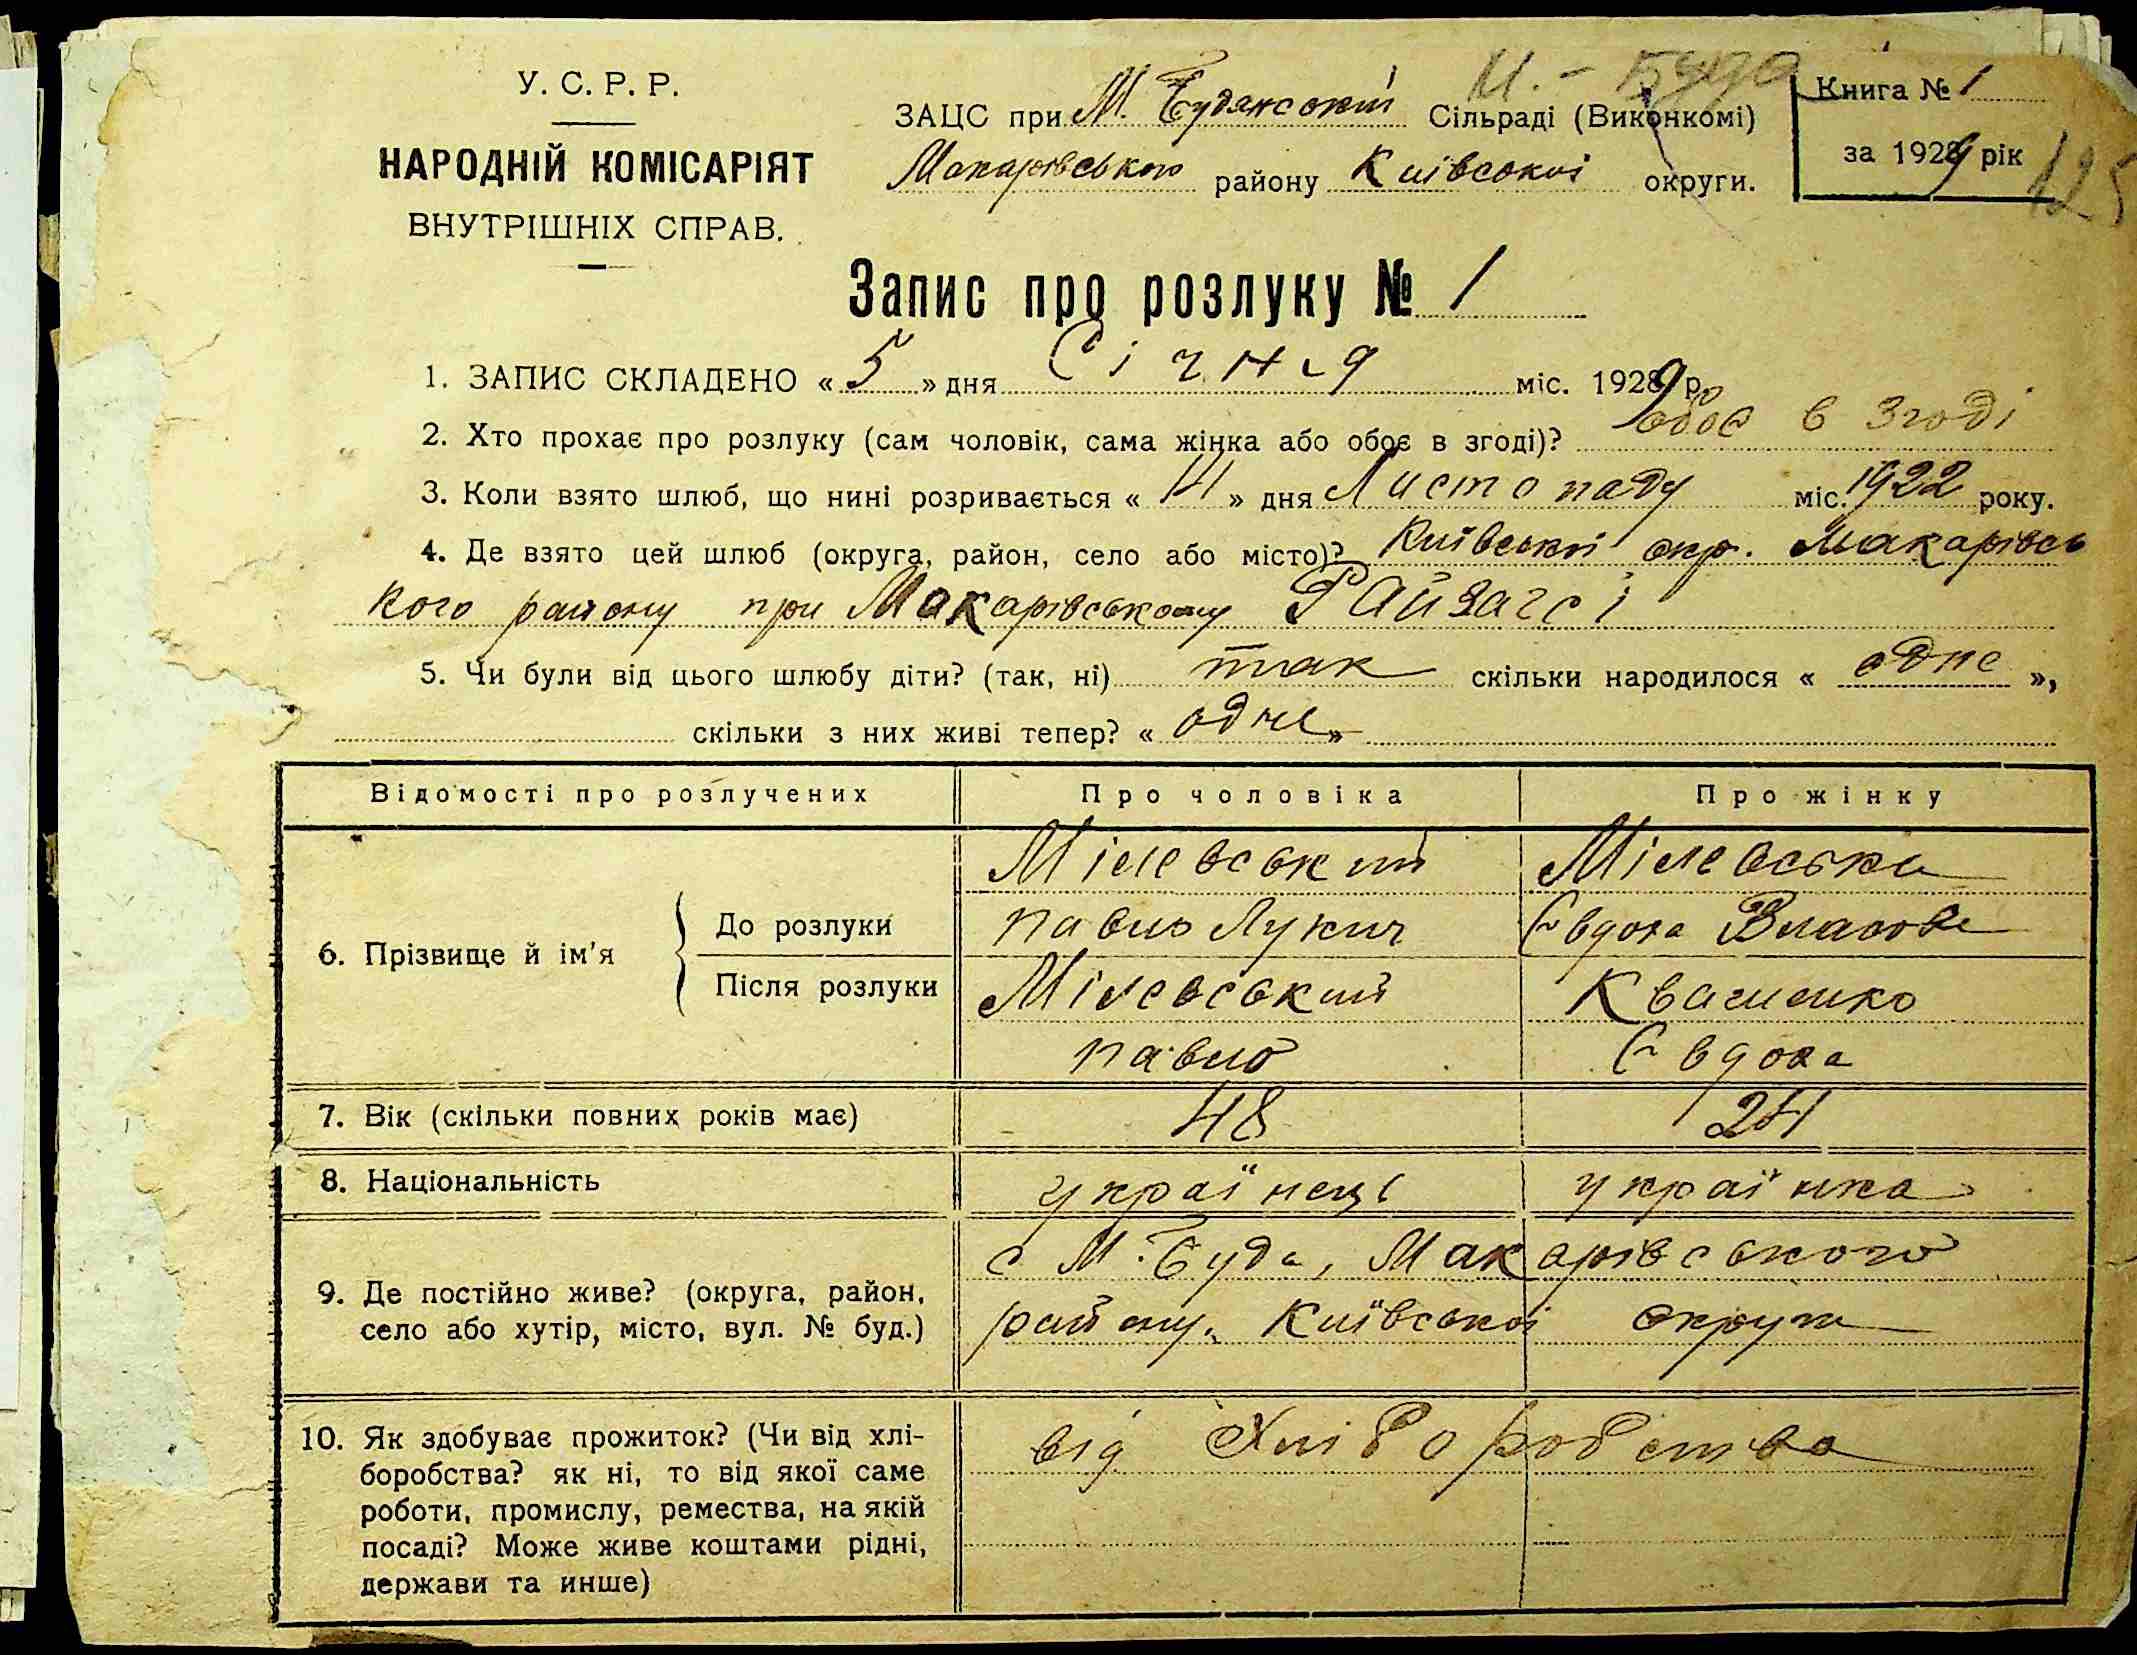 У. С. Р. Р.
НАРОДНІЙ КОМІСАРІЯТ
ВНУТРІШНІХ СПРАВ.
М.-Буда
ЗАЦС при М. Будянській Сільраді (Виконкомі)
Макарівського району Київської округи.
Книга № 1
за 1929 рік
125
Запис про розлуку № 1
1. ЗАПИС СКЛАДЕНО « 5 » дня Січня міс. 1929 р.
2. Хто прохає про розлуку (сам чоловік, сама жінка або обоє в згоді)? обоє в згоді
3. Коли взято шлюб, що нині розривається « 14 » дня Листопаду міс. 1922 року.
4. Де взято цей шлюб (округа, район, село або місто)? Київської окр. Макарівсь
кого району при Макарівському Райзагсі
5. Чи були від цього шлюбу діти? (так, ні) так скільки народилося « одне »,
скільки з них живі тепер? « одне »
Відомості про розлучених Про чоловіка Про жінку
6. Прізвище й ім'я
До розлуки
Мілевський Мілевська
Павло Лукич Євдоха Власова
Після розлуки
Мілевський Квашенко
Павло Євдоха
7. Вік (скільки повних років має) 48 24
8. Національність українець українка
9. Де постійно живе? (округа, район,
село або хутір, місто, вул. № буд.)
с М. Буда, Макарівського
району, Київської округи
10. Як здобуває прожиток? (Чи від хлі-
боробства? як ні, то від якої саме
роботи, промислу, ремества, на якій
посаді? Може живе коштами рідні,
держави та инше)
від Хліборобства